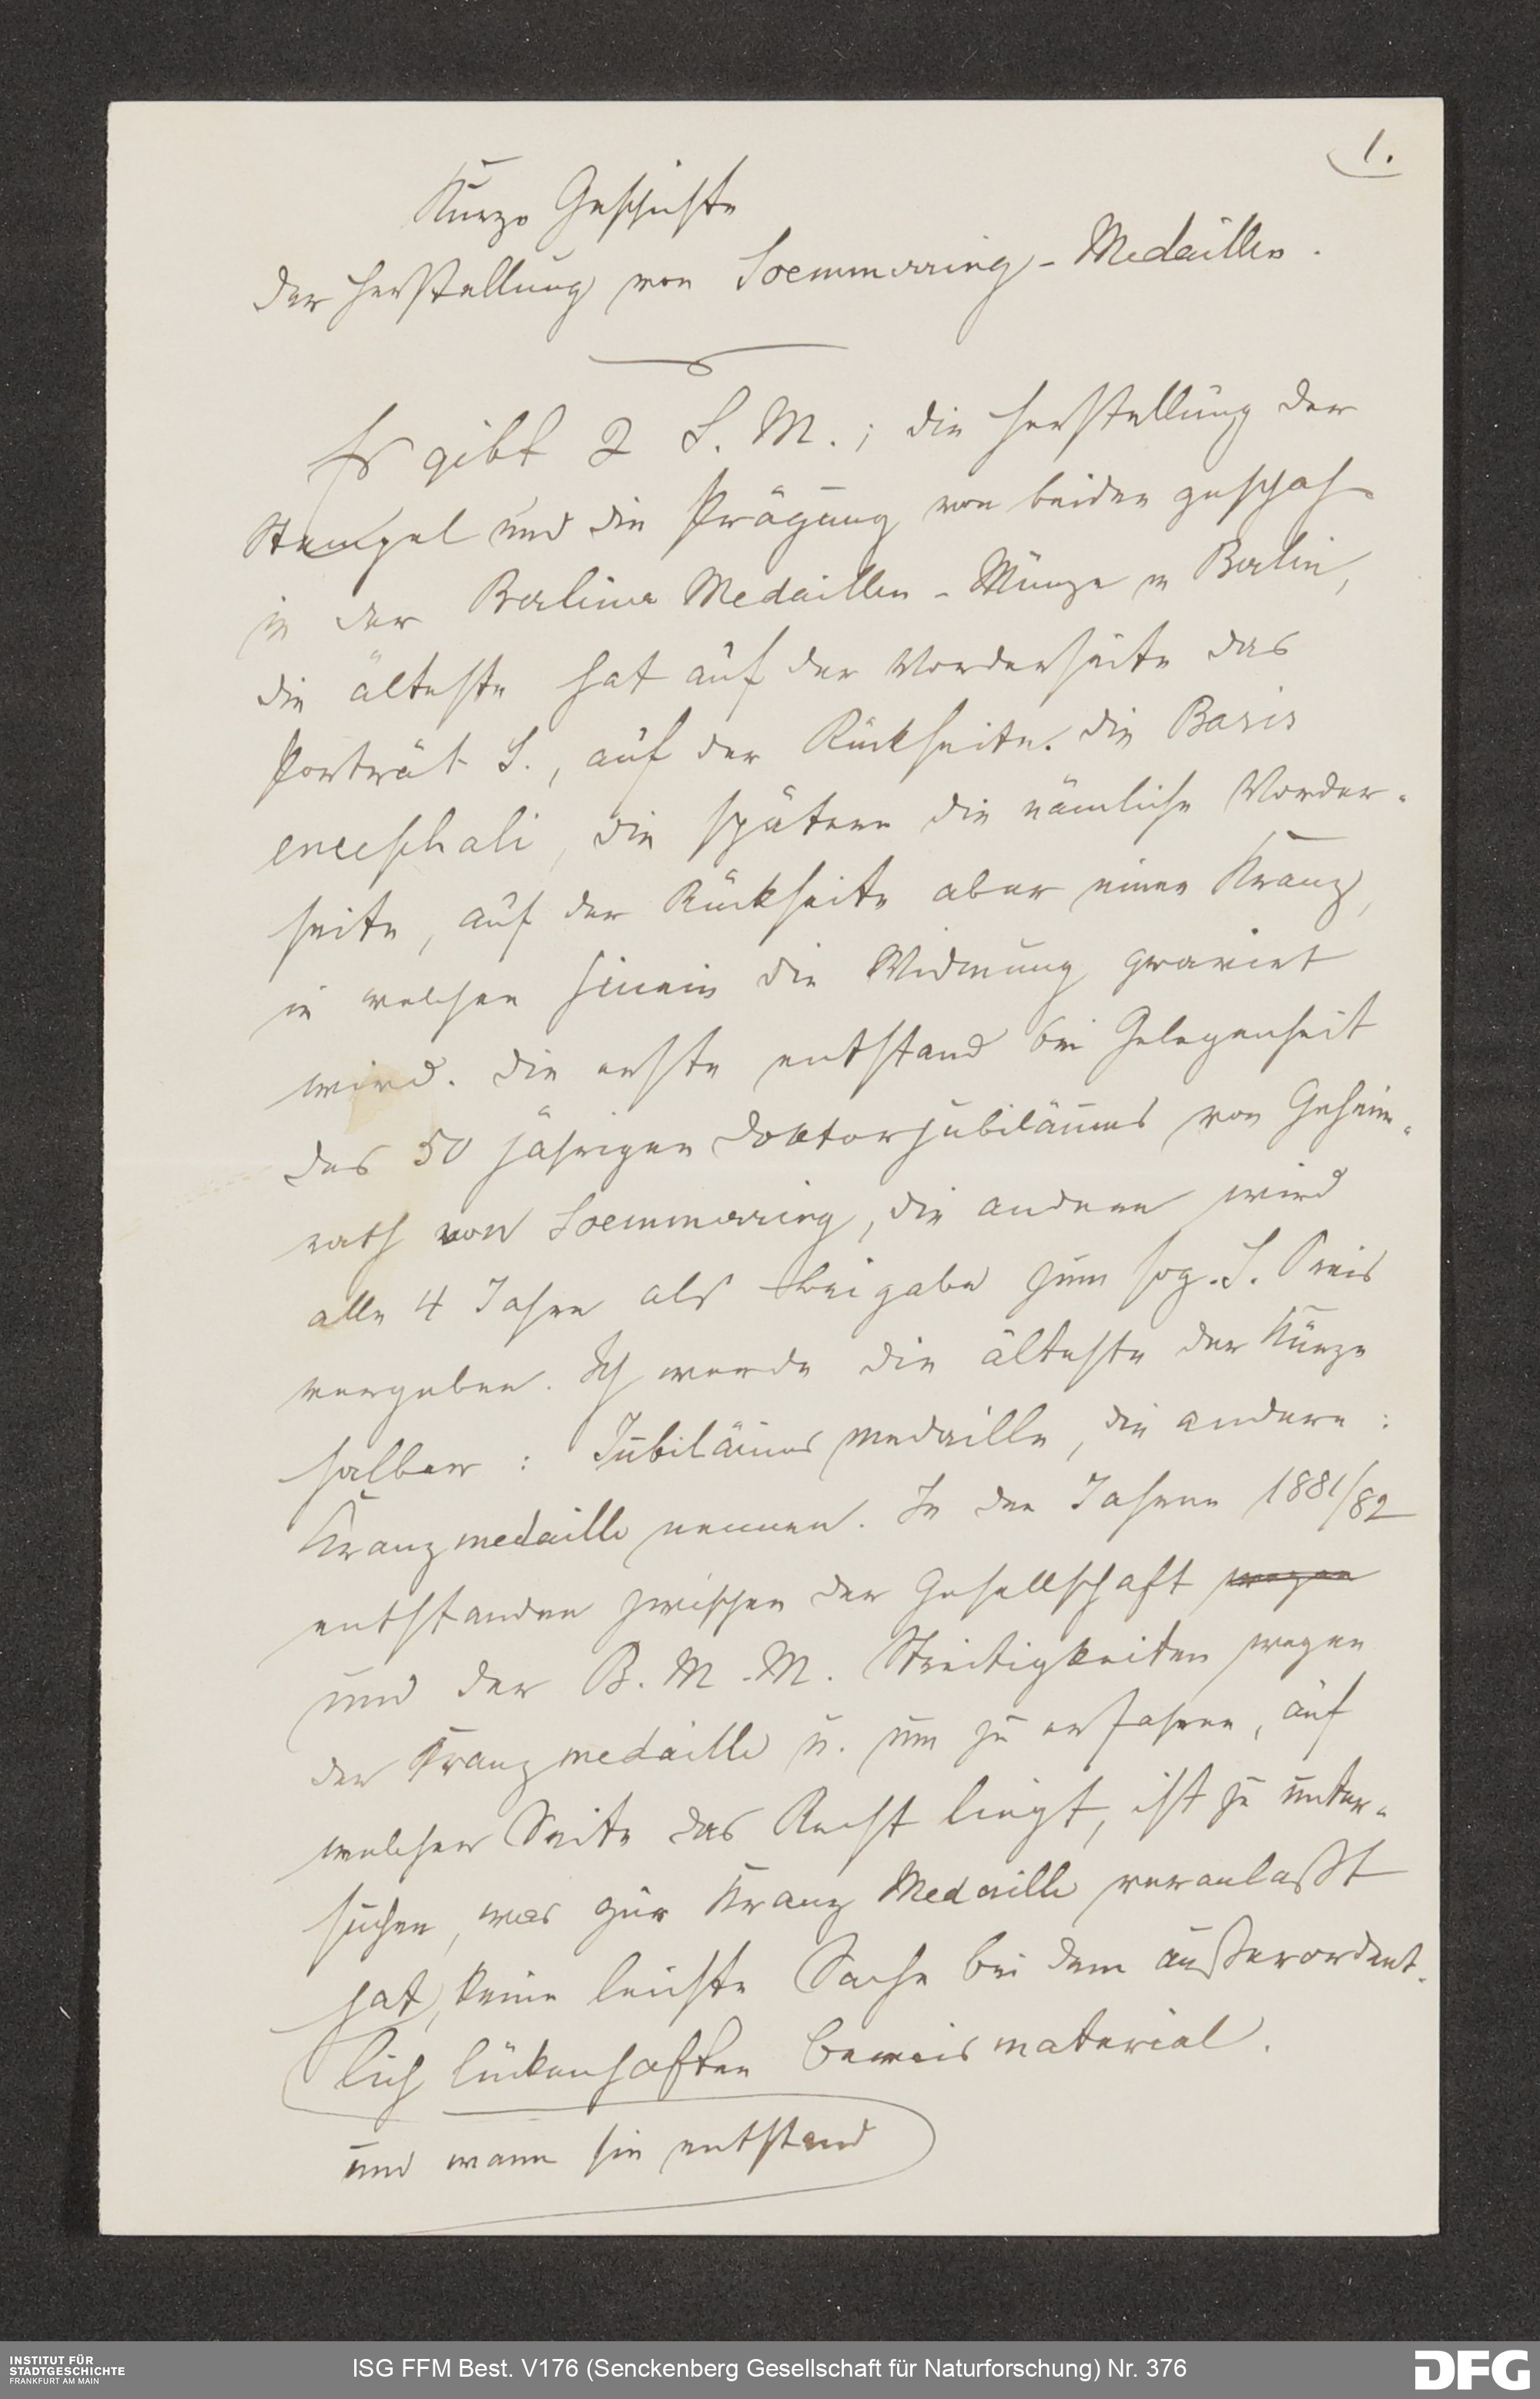 1.
Kurze Geschichte
der Herstellung von Soemmerring-Medaillen.
Es gibt 2 S. M.; die Herstellung der
Stempel und die Prägung von beiden geschah
in der Berliner Medaillen-Münze in Berlin,
die älteste hat auf der Vorderseite das
Porträt S., auf der Rückseite die Basis
encephali, die spätere die nämliche Vorder-
seite, auf der Rückseite aber einen Kranz,
in welchen hinein die Widmung graviert
wird. Die erste entstand bei Gelegenheit
des 50 jährigen Doktorjubiläums von Geheim-
rath von Soemmerring, die andere wird
alle 4 Jahre als Beigabe zum sog. S. Preis
vergeben. Ich werde die älteste der Kürze
halber: Jubiläumsmedaille, die andere:
Kranzmedaille nennen. In den Jahren 1881/82
entstanden zwischen der Gesellschaft wegen
und der B. M. M. Streitigkeiten wegen
der Kranzmedaille u. um zu erfahren, auf
welcher Seite das Recht liegt, ist zu unter-
suchen, was zur Kranz Medaille veranlaßt
hat, keine leichte Sache bei dem außerordent-
lich lückenhaften Beweismaterial.
und wann sie entstand
INSTITUT FÜR
STADTGESCHICHTE
FRANKFURT AM MAIN
ISG FFM Best. V176 (Senckenberg Gesellschaft für Naturforschung) Nr. 376
DFG